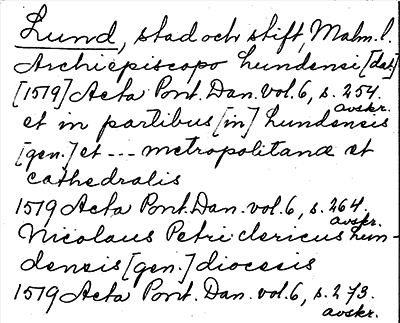 Lund, stad och stift, Malm. l.
Archiepiscopo Lundensi [dat.]
[1579] Acta Pont. Dan. vol. 6, s. 254.
avskr.
et in partibus [in] Lundensis
[gen.] et --- metropolitanæ et
cathedralis
1519 Acta Pont. Dan. vol. 6, s. 264.
avskr.
Nicolaus Petri clericus Lun-
densis [gen.] diocesis
1519 Acta Pont. Dan. vol. 6, s. 273.
avskr.